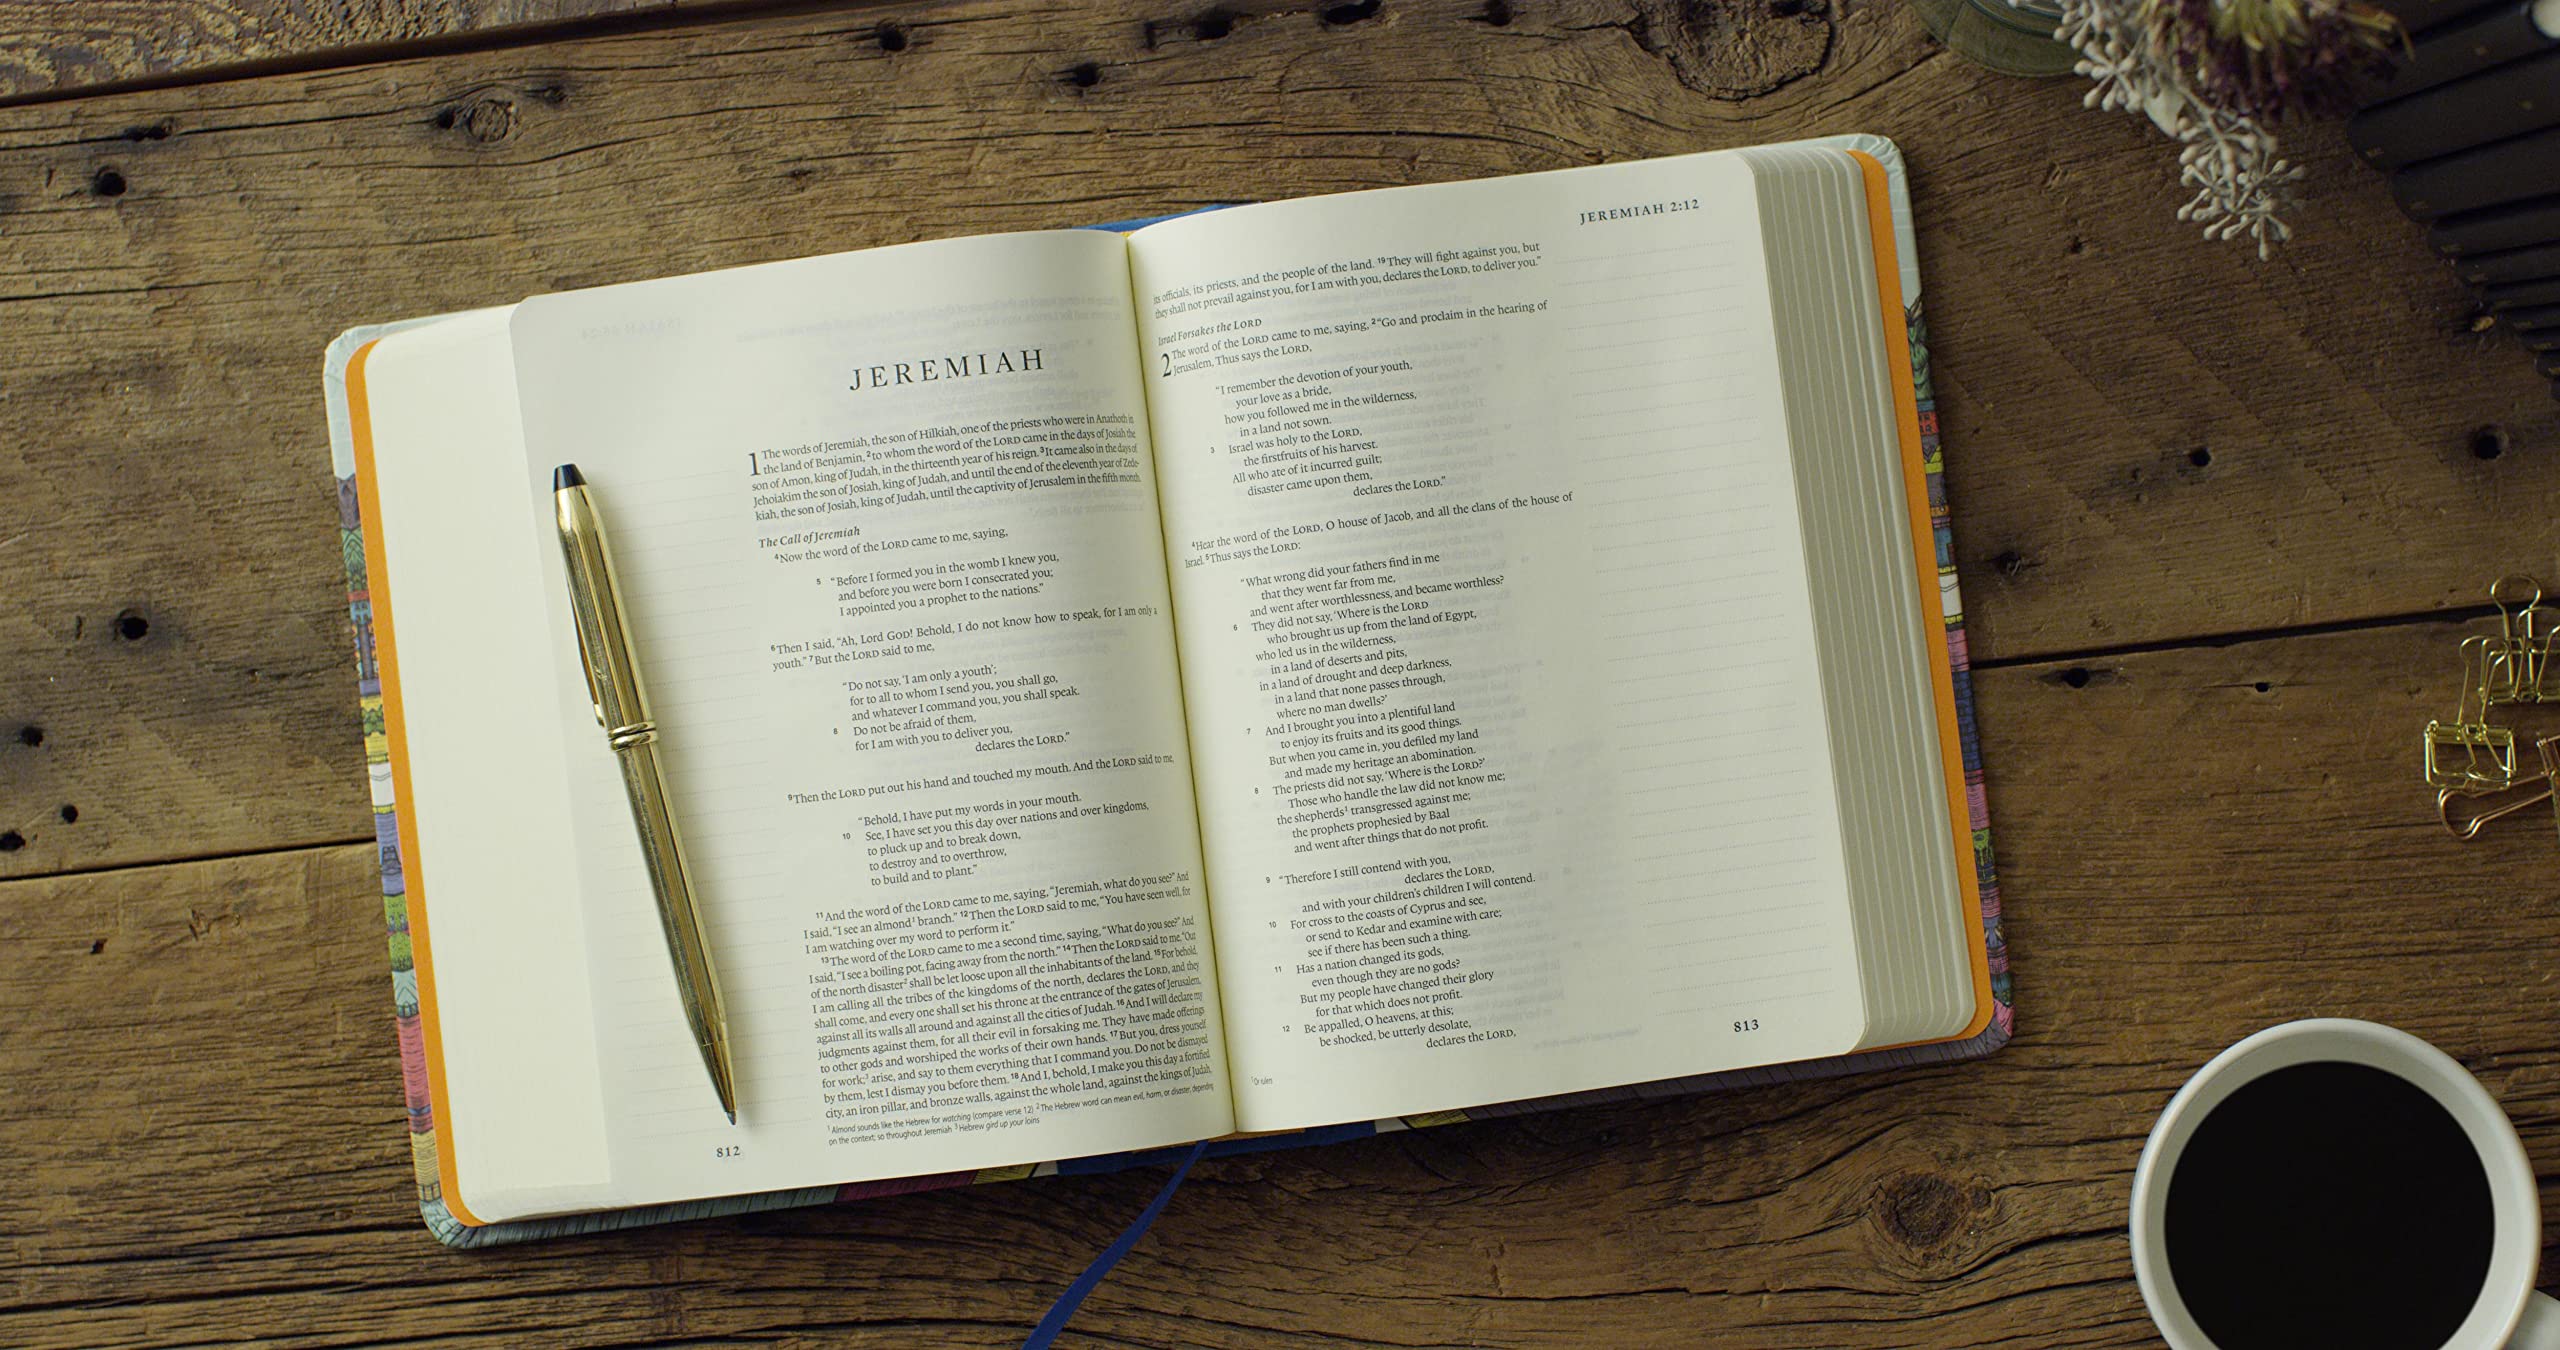 JEREMIAH
1 The words of Jeremiah, the son of Hilkiah, one of the priests who were in Anathoth in
the land of Benjamin, 2 to whom the word of the LORD came in the days of Josiah the
son of Amon, king of Judah, in the thirteenth year of his reign. 3 It came also in the days of
Jehoiakim the son of Josiah, king of Judah, and until the end of the eleventh year of Zede-
kiah, the son of Josiah, king of Judah, until the captivity of Jerusalem in the fifth month.
The Call of Jeremiah
4 Now the word of the LORD came to me, saying,
5 “Before I formed you in the womb I knew you,
and before you were born I consecrated you;
I appointed you a prophet to the nations.”
6 Then I said, “Ah, Lord GOD! Behold, I do not know how to speak, for I am only a
youth.” 7 But the LORD said to me,
“Do not say, ‘I am only a youth’;
for to all to whom I send you, you shall go,
and whatever I command you, you shall speak.
8 Do not be afraid of them,
for I am with you to deliver you,
declares the LORD.”
9 Then the LORD put out his hand and touched my mouth. And the LORD said to me,
“Behold, I have put my words in your mouth.
10 See, I have set you this day over nations and over kingdoms,
to pluck up and to break down,
to destroy and to overthrow,
to build and to plant.”
11 And the word of the LORD came to me, saying, “Jeremiah, what do you see?” And
I said, “I see an almond1 branch.” 12 Then the LORD said to me, “You have seen well, for
I am watching over my word to perform it.”
13 The word of the LORD came to me a second time, saying, “What do you see?” And
I said, “I see a boiling pot, facing away from the north.” 14 Then the LORD said to me, “Out
of the north disaster2 shall be let loose upon all the inhabitants of the land. 15 For behold,
I am calling all the tribes of the kingdoms of the north, declares the LORD, and they
shall come, and every one shall set his throne at the entrance of the gates of Jerusalem,
against all its walls all around and against all the cities of Judah. 16 And I will declare my
judgments against them, for all their evil in forsaking me. They have made offerings
to other gods and worshiped the works of their own hands. 17 But you, dress yourself
for work;3 arise, and say to them everything that I command you. Do not be dismayed
by them, lest I dismay you before them. 18 And I, behold, I make you this day a fortified
city, an iron pillar, and bronze walls, against the whole land, against the kings of Judah,
1 Almond sounds like the Hebrew for watching (compare verse 12) 2 The Hebrew word can mean evil, harm, or disaster, depending
on the context; so throughout Jeremiah 3 Hebrew gird up your loins
812
JEREMIAH 2:12
its officials, its priests, and the people of the land. 19 They will fight against you, but
they shall not prevail against you, for I am with you, declares the LORD, to deliver you.”
Israel Forsakes the LORD
2 The word of the LORD came to me, saying, 2 “Go and proclaim in the hearing of
Jerusalem, Thus says the LORD,
“I remember the devotion of your youth,
your love as a bride,
how you followed me in the wilderness,
in a land not sown.
3 Israel was holy to the LORD,
the firstfruits of his harvest.
All who ate of it incurred guilt;
disaster came upon them,
declares the LORD.”
4 Hear the word of the LORD, O house of Jacob, and all the clans of the house of
Israel. 5 Thus says the LORD:
“What wrong did your fathers find in me
that they went far from me,
and went after worthlessness, and became worthless?
6 They did not say, ‘Where is the LORD
who brought us up from the land of Egypt,
who led us in the wilderness,
in a land of deserts and pits,
in a land of drought and deep darkness,
in a land that none passes through,
where no man dwells?’
7 And I brought you into a plentiful land
to enjoy its fruits and its good things.
But when you came in, you defiled my land
and made my heritage an abomination.
8 The priests did not say, ‘Where is the LORD?’
Those who handle the law did not know me;
the shepherds1 transgressed against me;
the prophets prophesied by Baal
and went after things that do not profit.
9 “Therefore I still contend with you,
declares the LORD,
and with your children’s children I will contend.
10 For cross to the coasts of Cyprus and see,
or send to Kedar and examine with care;
see if there has been such a thing.
11 Has a nation changed its gods,
even though they are no gods?
But my people have changed their glory
for that which does not profit.
12 Be appalled, O heavens, at this;
be shocked, be utterly desolate,
declares the LORD,
1 Or rulers
813